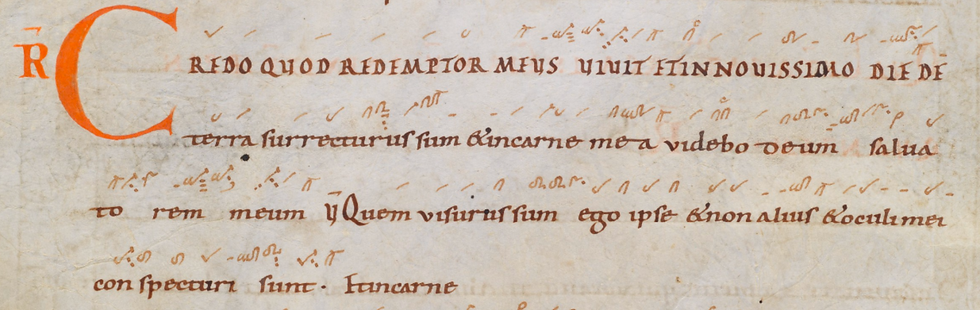 R̄ CREDO QUOD REDEMPTOR MEUS UIUIT ET IN NOUISSIMO DIE DE
terra surrecturus sum & in carne mea videbo deum salua
to rem meum V̄ Quem visurus sum ego ipse & non alius & oculi mei
con specturi sunt · Et in carne